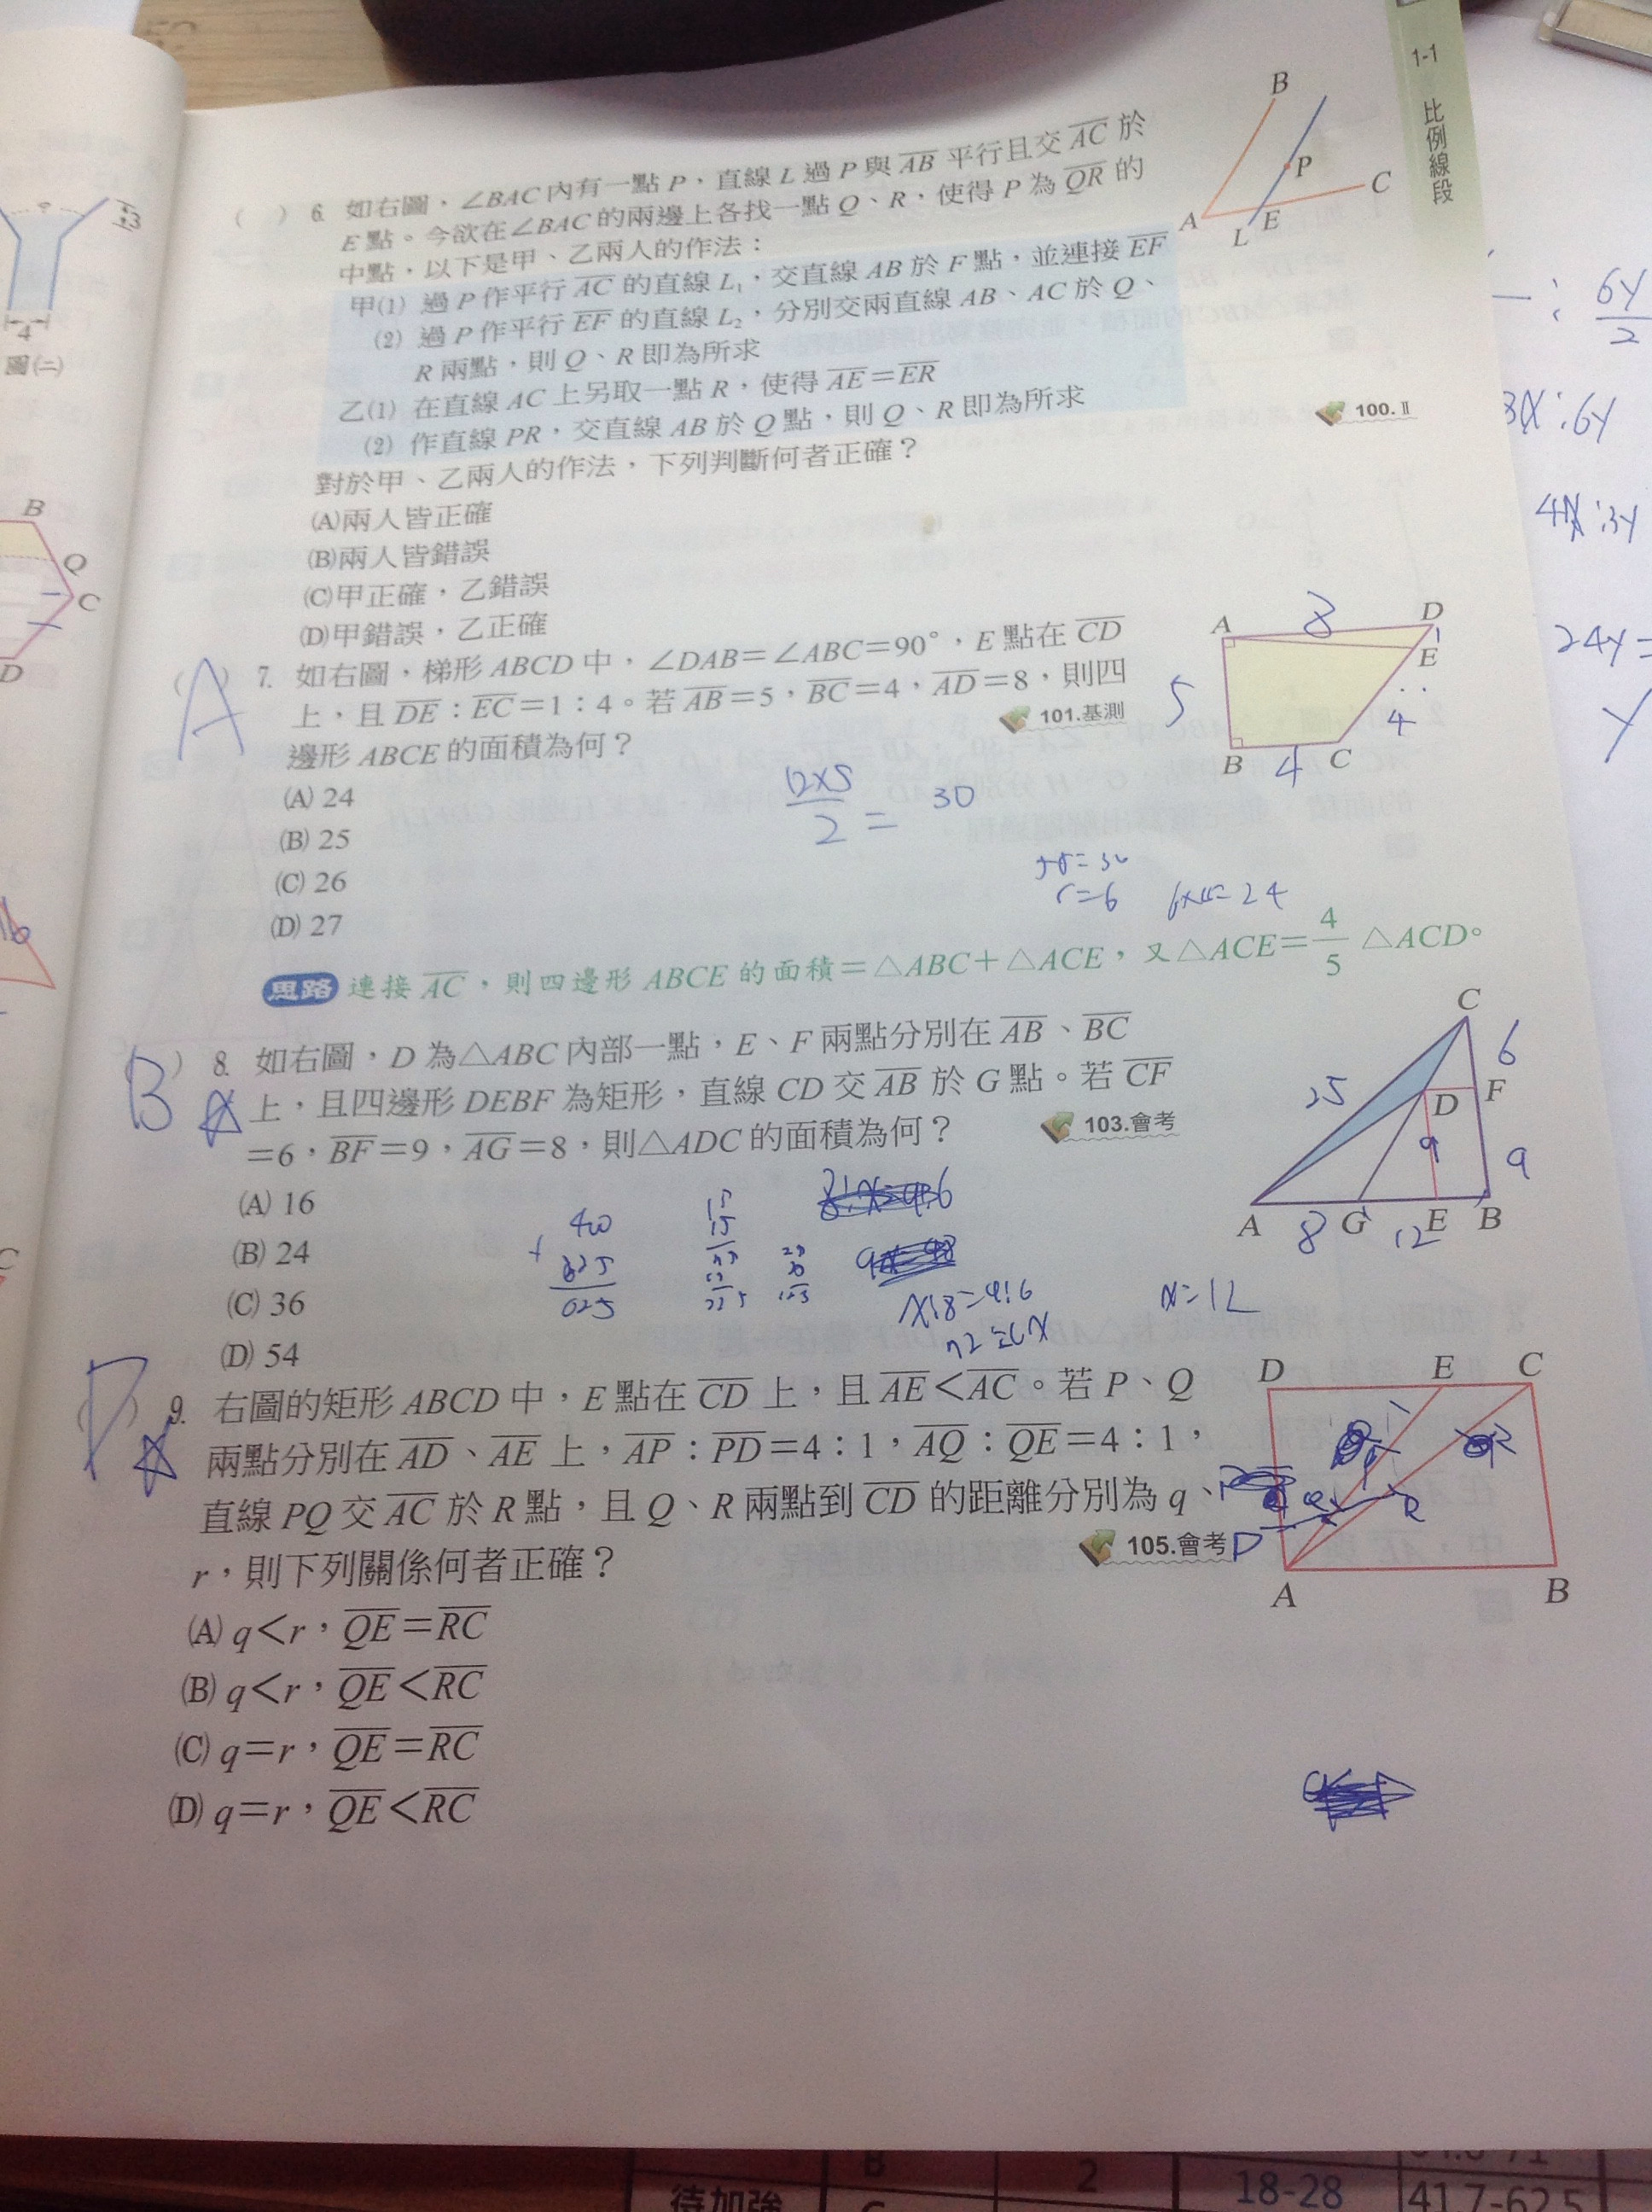 1-1 比例線段
( ) 6. 如右圖,∠BAC內有一點P,直線L過P與AB平行且交AC於
E點。今欲在∠BAC的兩邊上各找一點Q、R,使得P為QR的
中點,以下是甲、乙兩人的作法:
甲(1) 過P作平行AC的直線L₁,交直線AB於F點,並連接EF
(2) 過P作平行EF的直線L₂,分別交兩直線AB、AC於Q、
R兩點,則Q、R即為所求
乙(1) 在直線AC上另取一點R,使得AE=ER
(2) 作直線PR,交直線AB於Q點,則Q、R即為所求
100.Ⅱ
對於甲、乙兩人的作法,下列判斷何者正確?
(A)兩人皆正確
(B)兩人皆錯誤
(C)甲正確,乙錯誤
(D)甲錯誤,乙正確
B
P
C
A
L
E
A
( ) 7. 如右圖,梯形ABCD中,∠DAB=∠ABC=90°,E點在CD
上,且DE:EC=1:4。若AB=5,BC=4,AD=8,則四
邊形ABCE的面積為何?
101.基測
(A) 24
(B) 25
(C) 26
(D) 27
A 8 D
1
E
5
4
B 4 C
12×5
2
= 30
r=6
6×4=24
思路 連接AC,則四邊形ABCE的面積=△ABC+△ACE,又△ACE=4/5 △ACD。
B
( ) 8. 如右圖,D為△ABC內部一點,E、F兩點分別在AB、BC
上,且四邊形DEBF為矩形,直線CD交AB於G點。若CF
=6,BF=9,AG=8,則△ADC的面積為何?
103.會考
(A) 16
(B) 24
(C) 36
(D) 54
C
6
25
D F
9
9
A 8 G 12 E B
x:8=9:6
x=12
D
( ) 9. 右圖的矩形ABCD中,E點在CD上,且AE<AC。若P、Q
兩點分別在AD、AE上,AP:PD=4:1,AQ:QE=4:1,
直線PQ交AC於R點,且Q、R兩點到CD的距離分別為q、
r,則下列關係何者正確?
105.會考
(A) q<r,QE=RC
(B) q<r,QE<RC
(C) q=r,QE=RC
(D) q=r,QE<RC
D E C
R
A B
4
圖(二)
B
Q
C
D
16
6y
2
3x:6y
4x:3y
24y=
y
待加強
B
2
18-28